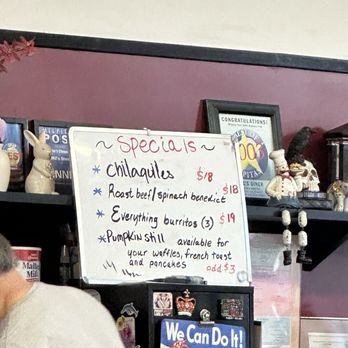 ~ Specials ~
* Chilaquiles $18
* Roast beef/spinach benedict $18
* Everything burritos (3) $19
* Pumpkin still available for
your waffles, french toast
and pancakes add $3
CONGRATULATIONS!
We Can Do It!